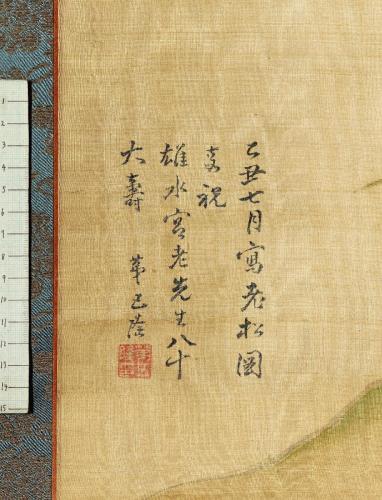 乙丑七月寫老松圖
祝
雄水宮老先生八十
大壽
1
2
3
4
5
6
7
8
9
10
11
12
13
14
15